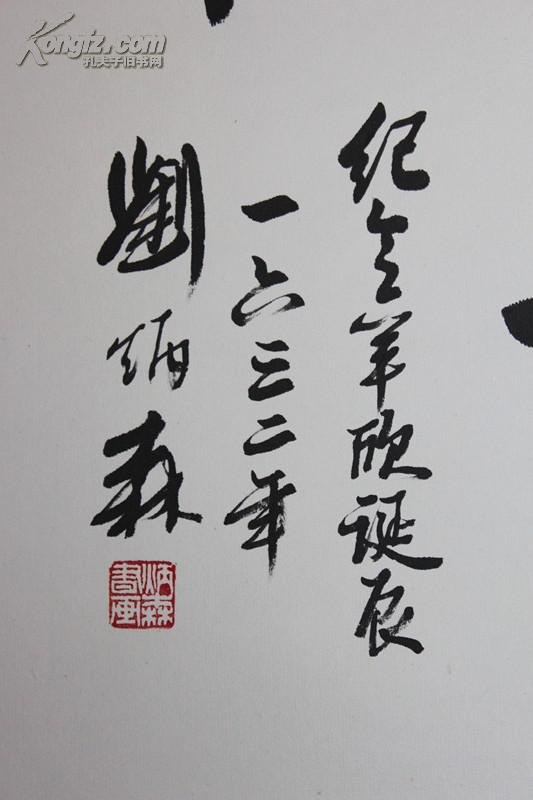 Kongfz.com
孔夫子旧书网
纪念羊欣诞辰
一六三二年
劉炳森
炳森
書画